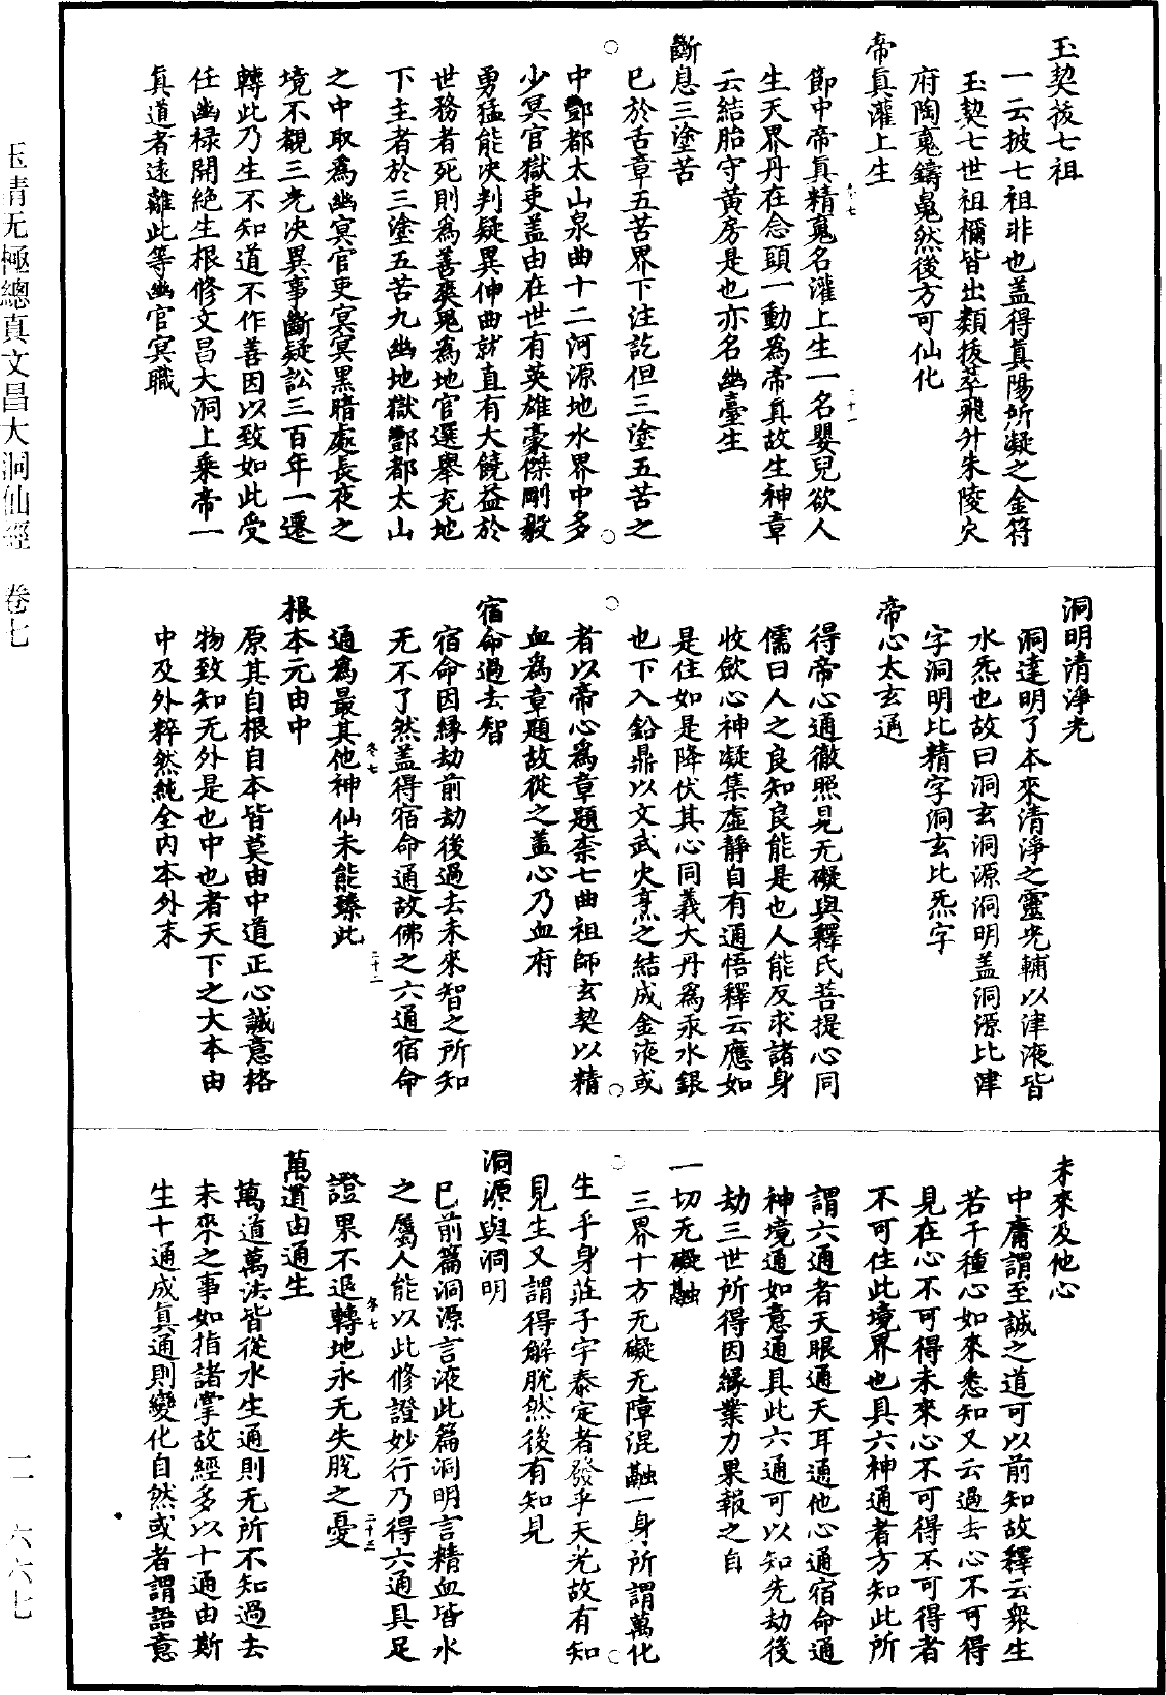 玉契拔七祖
一云披七祖非也盖得眞陽所凝之金符
玉契七世祖禰皆出類拔萃飛升朱陵火
府陶䰟鑄䰟然後方可仙化
帝眞灌上生
節中帝眞精䰟名灌上生一名嬰兒欲人
生天界丹在念頭一動為帝眞故生神章
云結胎守黄房是也亦名幽臺生
斷息三塗苦
已於舌章五苦界下注訖但三塗五苦之
中酆都太山泉曲十二河源地水界中多
少冥官獄吏盖由在世有英雄豪傑剛毅
勇猛能决判疑異伸曲就直有大饒益於
世務者死則為善爽鬼為地官選舉充地
下主者於三塗五苦九幽地獄酆都太山
之中取為幽冥官吏冥冥黑暗處長夜之
境不覩三光决異事斷疑訟三百年一遷
轉此乃生不知道不作善因以致如此受
任幽禄開絕生根修文昌大洞上乘帝一
眞道者遠離此等幽官冥職
洞明清淨光
洞達明了本來清淨之靈光輔以津液皆
水炁也故曰洞玄洞源洞明盖洞源比津
字洞明比精字洞玄比炁字
帝心太玄通
得帝心通徹照見无礙與釋氏菩提心同
儒曰人之良知良能是也人能反求諸身
收斂心神凝集虛靜自有通悟釋云應如
是住如是降伏其心同義大丹為汞水銀
也下入鉛鼎以文武火烹之結成金液或
者以帝心為章題柰七曲祖師玄契以精
血為章題故從之盖心乃血府
宿命過去智
宿命因緣劫前劫後過去未來智之所知
无不了然盖得宿命通故佛之六通宿命
通為最其他神仙未能臻此
根本元由中
原其自根自本皆莫由中道正心誠意格
物致知无外是也中也者天下之大本由
中及外粹然純全內本外末
未來及他心
中庸謂至誠之道可以前知故釋云衆生
若干種心如來悉知又云過去心不可得
見在心不可得未來心不可得不可得者
不可住此境界也具六神通者方知此所
謂六通者天眼通天耳通他心通宿命通
神境通如意通具此六通可以知先劫後
劫三世所得因緣業力果報之自
一切无礙融
三界十方无礙无障混融一身所謂萬化
生乎身莊子宇泰定者發乎天光故有知
見生又謂得解脫然後有知見
洞源與洞明
巳前篇洞源言液此篇洞明言精血皆水
之屬人能以此修證妙行乃得六通具足
證果不退轉地永无失脫之憂
萬道由通生
萬道萬法皆從水生通則无所不知過去
未來之事如指諸掌故經多以十通由斯
生十通成眞通則變化自然或者謂語意
玉清无極總真文昌大洞仙經 卷七
二 六六七